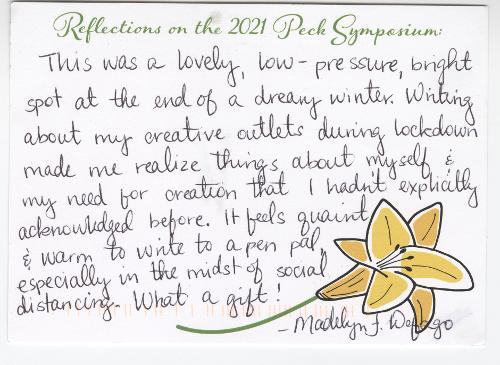 Reflections on the 2021 Peck Symposium:
This was a lovely, low-pressure, bright
spot at the end of a dreary winter. Writing
about my creative outlets during lockdown
made me realize things about myself &
my need for creation that I hadn't explicitly
acknowledged before. It feels quaint
& warm to write to a pen pal,
especially in the midst of social
distancing. What a gift!
- Madelyn J.